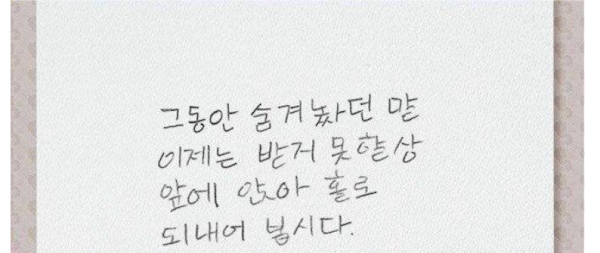 그동안 숨겨놨던 말
이제는 받거 못할 상
앞에 앉아 홀로
되내어 봅시다.